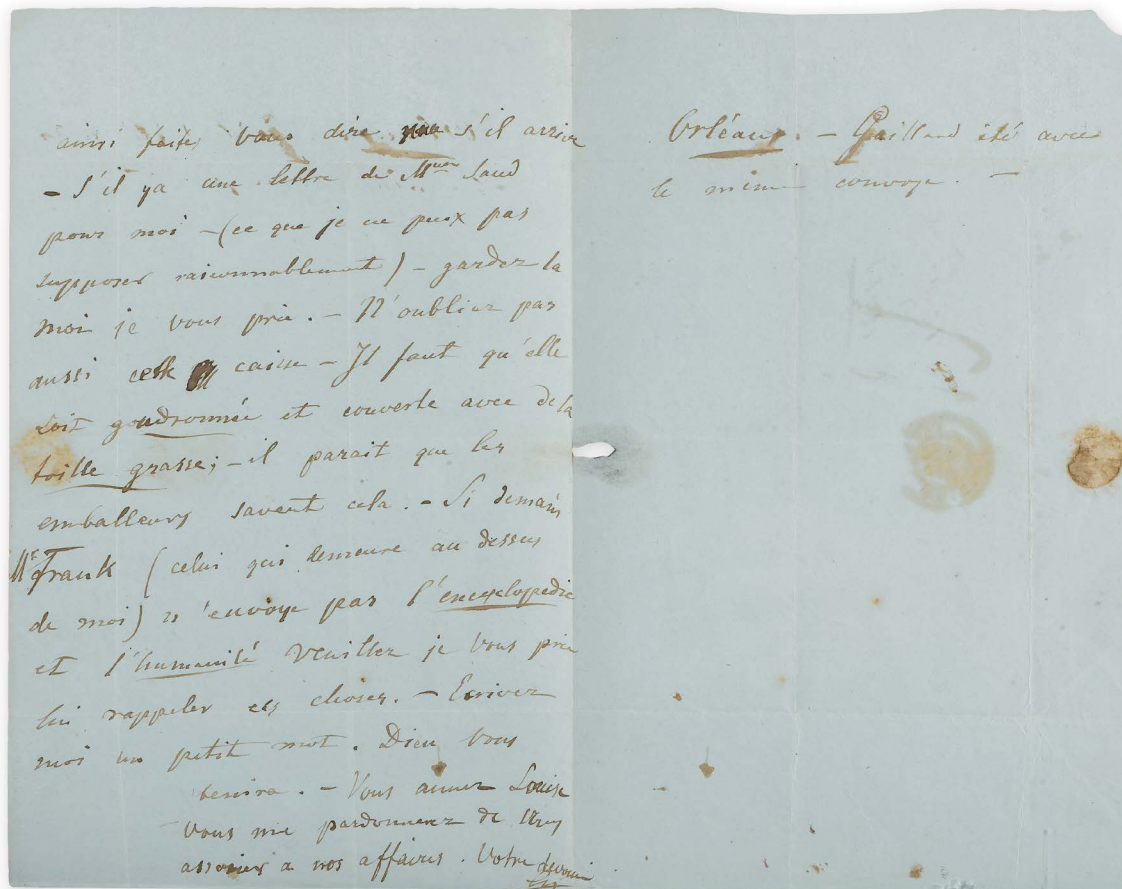 ainsi faites vous dire s'il arrive
- S'il ya une lettre de M^me Sand
pour moi - (ce que je ne peux pas
supposer raisonnablement) - gardez la
moi je vous prie. - N'oubliez pas
aussi cette caisse - Il faut qu'elle
soit gudronnée et couverte avec de la
toille grasse; - il parait que les
emballeurs savent cela. - Si demain
Mr Frank (celui qui demeure au dessus
de moi) n'envoye pas l'encyclopedie
et l'humanité veuillez je vous prie
lui rappeler ces choses. - Ecrivez
moi un petit mot. Dieu vous
benira. - Vous aimez Louise
vous me pardonnerez de
associer a nos affaires. Votre
Orléans. - Gaillard été avec
le même convoye. -